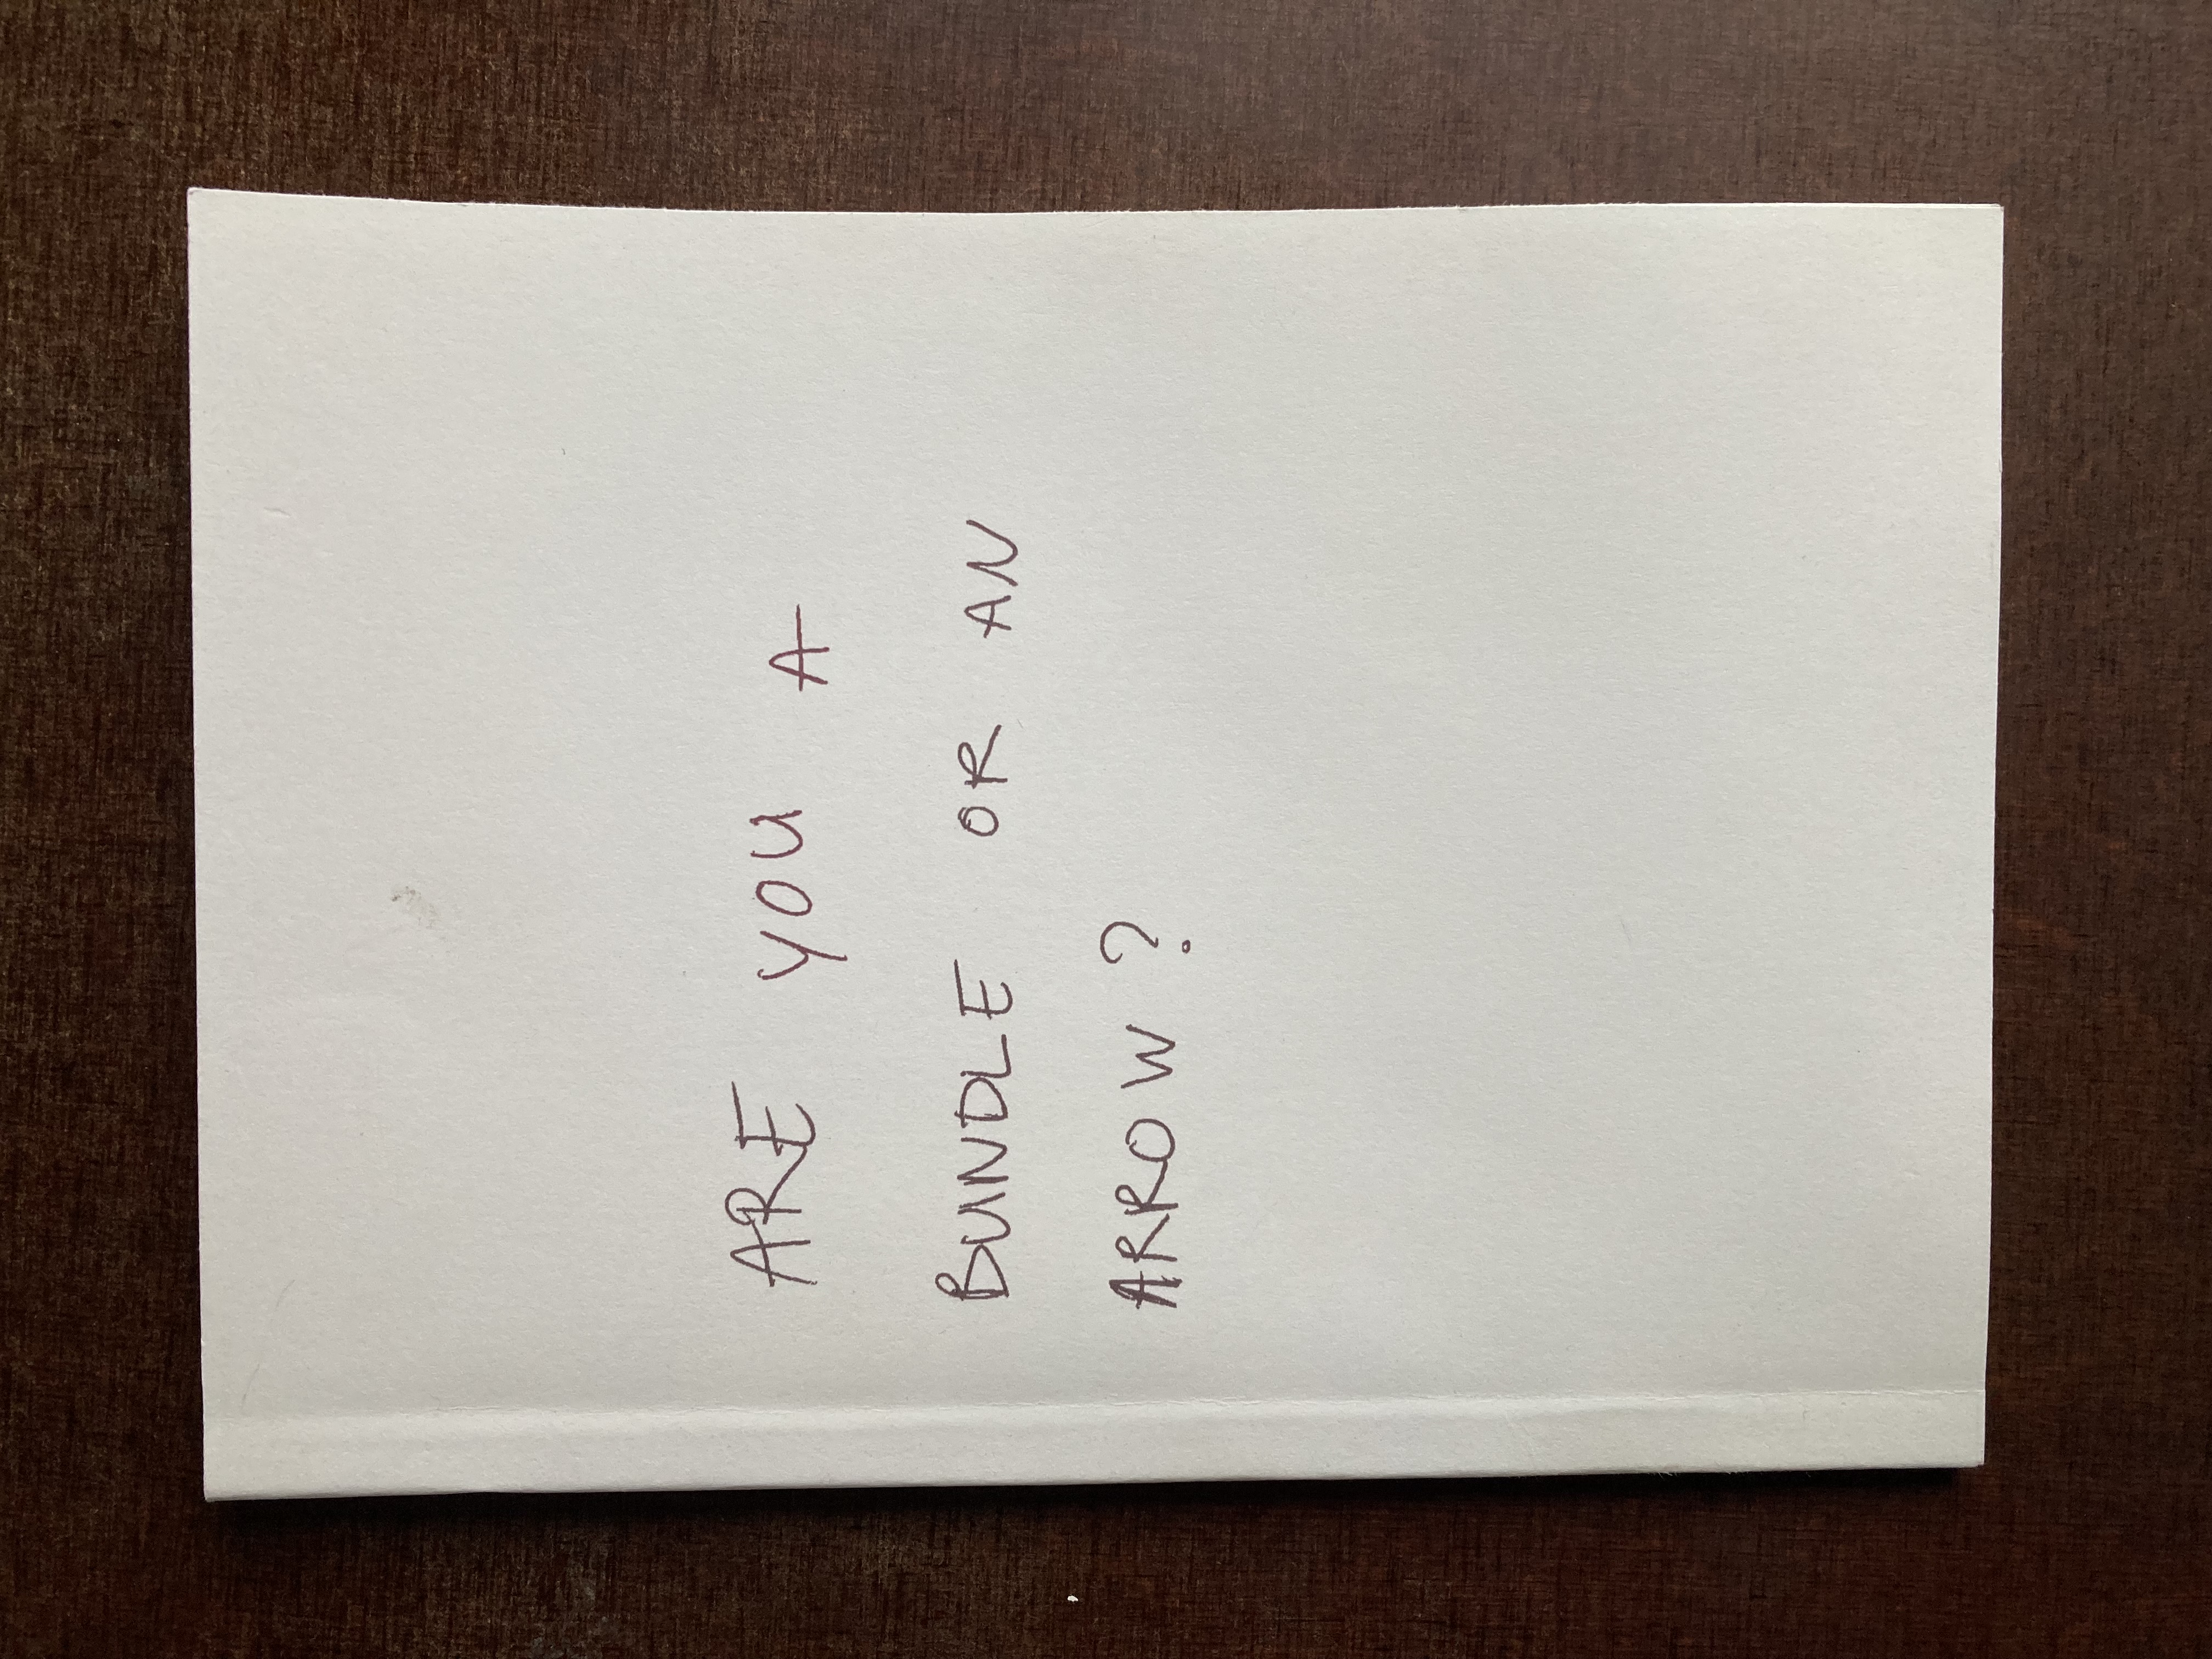 ARE YOU A
BUNDLE OR AN
ARROW?